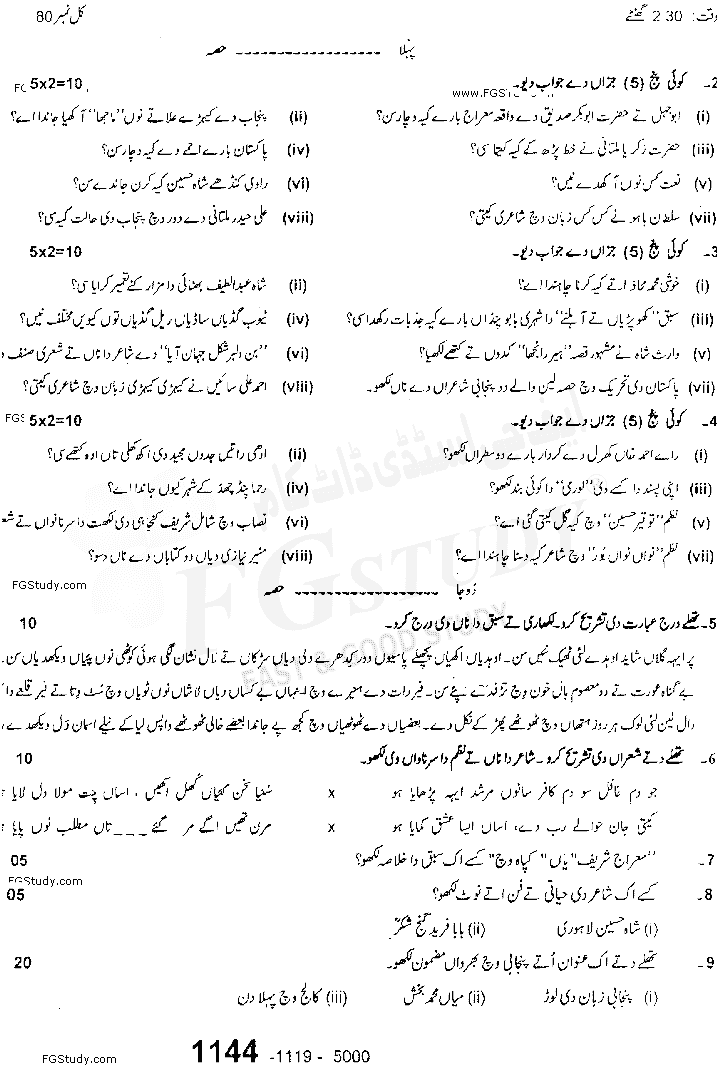 وقت: 2.30 گھنٹے کل نمبر 80
پہلا ------------------ حصہ
2۔ کوئی پنج (5) جزاں دے جواب دیو۔ 5x2=10
www.FGS
(i) ابوجہل تے حضرت ابوبکر صدیق دے واقعہ معراج بارے کیہ وچار سن؟ (ii) پنجاب دے کیہڑے علاقے نوں "ماجھا" آکھیا جاندا اے؟
(iii) حضرت زکریا ملتانی نے خط پڑھ کے کیہ کیتا سی؟ (iv) پاکستان بارے احمے دے کیہ وچار سن؟
(v) نعت کس نوں آکھدے نیں؟ (vi) راوی کنڈھے شاہ حسین کیہ کرن جاندے سن؟
(vii) سلطان باہو نے کس کس زبان وچ شاعری کیتی؟ (viii) علی حیدر ملتانی دے دور وچ پنجاب دی حالت کیہ سی؟
3۔ کوئی پنج (5) جزاں دے جواب دیو۔ 5x2=10
(i) خوشی محمد محاذ اتے کیہ کرنا چاہندا اے؟ (ii) شاہ عبداللطیف بھٹائی دا مزار کنے تعمیر کرایا سی؟
(iii) سبق "کھوپڑیاں تے آہلنے" دا شہری بابو پنڈاں بارے کیہ جذبات رکھدا سی؟ (iv) ٹیوب گڈیاں ساڈیاں ریل گڈیاں توں کیویں مختلف نیں؟
(v) وارث شاہ نے مشہور قصہ "ہیر رانجھا" کدوں تے کتھے لکھیا؟ (vi) "بن الہر شکل جہان آیا" دے شاعر دا ناں تے شعری صنف و
(vii) پاکستان دی تحریک وچ حصہ لین والے دو پنجابی شاعراں دے ناں لکھو۔ (viii) احمد علی سائیں نے کیہڑی کیہڑی زبان وچ شاعری کیتی؟
4۔ کوئی پنج (5) جزاں دے جواب دیو۔ FGS 5x2=10
(i) رائے احمد خاں کھرل دے کردار بارے دو سطراں لکھو؟ (ii) ادھی راتیں جدوں مجید دی اکھ کھلی تاں اوہ کتھے سی؟
(iii) اپنی پسند دا کسے دی "لوری" دا کوئی بند لکھو؟ (iv) رحما پنڈ چھڈ کے شہر کیوں جاندا اے؟
(v) نظم "توقیر حسین" وچ کیہ گل کیتی گئی اے؟ (vi) نصاب وچ شامل شریف کنجاہی دی لکھت دا سرناواں تے شع
(vii) نظم "نواں نواں بُور" وچ شاعر کیہ دسنا چاہندا اے؟ (viii) منیر نیازی دیاں دو کتاباں دے ناں دسو؟
FGStudy.com
دُوجا ------------------ حصہ
5۔ تھلے درج عبارت دی تشریح کرو۔ لکھاری تے سبق دا ناں وی درج کرو۔ 10
پر ایہہ گلاں شاید اوہدے لئی ٹھیک نئیں سن۔ اوہدیاں اکھیاں پچھلے پاسیوں دور کیدھرے دلی دیاں سڑکاں تے نال نشان لگی ہوئی کوٹھی نوں پیاں ویکھدیاں سن۔
بے گناہ عورت تے دو معصوم بال خون وچ تڑفدے پئے سن۔ فیر رات دے ہنیرے وچ ایہناں بے کساں دیاں لاشاں نوں ٹویاں وچ سُٹ دتا تے فیر قلعے دا
دال لین لئی لوک ہر روز ہتھاں وچ ٹھوٹھے پھڑ کے نکل دے۔ بعضیاں دے ٹھوٹھیاں وچ کجھ پے جاندا بعضے خالی ٹھوٹھے واپس لیا کے نیلے اسمان ول ویکھدے،
6۔ تھلے دتے شعراں دی تشریح کرو۔ شاعر دا ناں تے نظم دا سرناواں وی لکھو۔ 10
جو دم غافل سو دم کافر سانوں مرشد ایہہ پڑھایا ہو x سُنیا سخن گیاں کُھل اکھیں، اساں چت مولا ول لایا
کیتی جان حوالے رب دے، اساں ایسا عشق کمایا ہو x مرن تھیں اگے مر گئے ___ تاں مطلب نوں پایا
7۔ "معراج شریف" یاں "کپاہ وچ" کسے اک سبق دا خلاصہ لکھو؟ 05
FGStudy.com
8۔ کسے اک شاعر دی حیاتی تے فن اتے نوٹ لکھو؟ 05
(i) شاہ حسین لاہوری (ii) بابا فرید گنج شکرؒ
9۔ تھلے دتے اک عنوان اُتے پنجابی وچ بھرواں مضمون لکھو۔ 20
(i) پنجابی زبان دی لوڑ (ii) میاں محمد بخش (iii) کالج وچ پہلا دن
1144 -1119 - 5000
FGStudy.com
ایف جی اسٹڈی ڈاٹ کام
FGSTUDY
FAST & GOOD STUDY